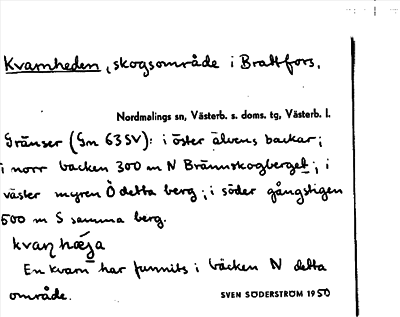 Kvarnheden, skogsområde i Brattfors.
Nordmalings sn, Västerb. s. doms. tg, Västerb. l.
Gränser (Gm 63 SV): i öster älvens backar;
i norr bäcken 300 m N Brännskogberget; i
väster myren Ö detta berg; i söder gångstigen
500 m S samma berg.
En kvarn har funnits i bäcken N detta
område.
SVEN SÖDERSTRÖM 1950